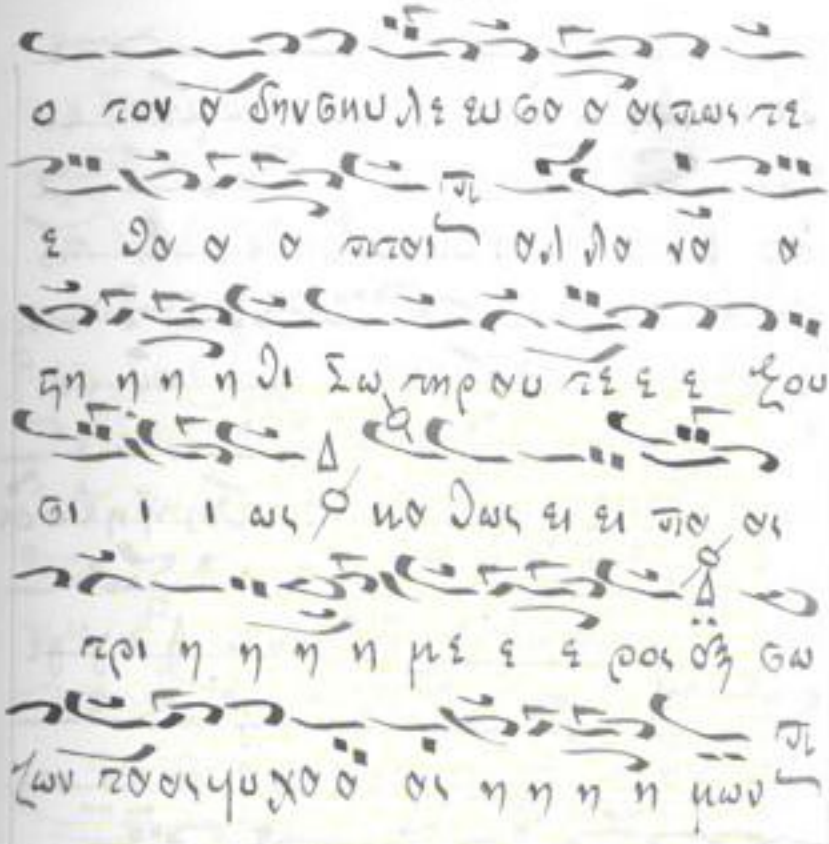 ο τον α δην σκυ λε ευ σα α ας πως τε
ε θα α α α πται αλ λα να α
ζη η η η θι Σω τηρ αυ τε ε ε ξου
σι ι ι ως κα θως ει ει πα ας
τρι η η η η με ε ε ρος σω
ζων τα ας ψυ χα α ας η η η η μων